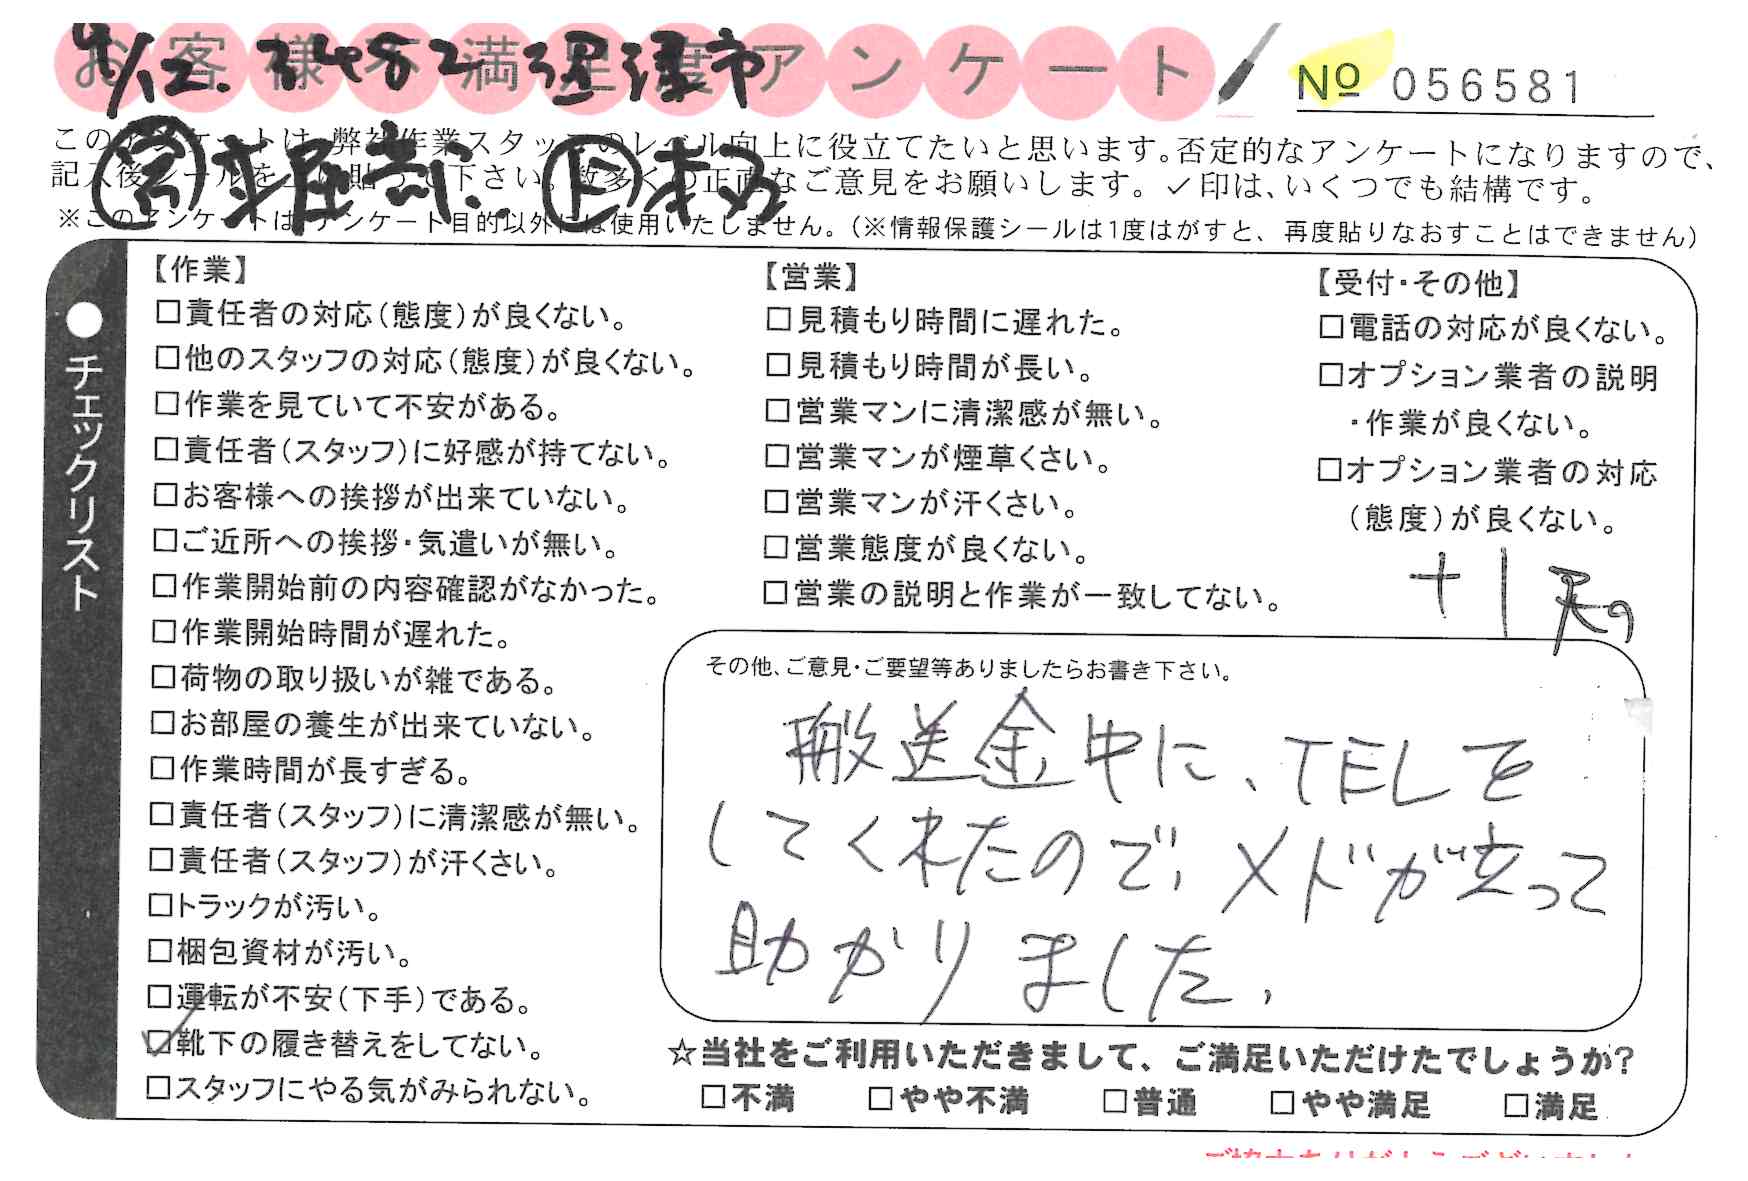 お客様不満足度アンケート
No 056581
9/12. 沼津市
このアンケートは、弊社作業スタッフのレベル向上に役立てたいと思います。否定的なアンケートになりますので、
記入後シールを上に貼って下さい。数多くの正直なご意見をお願いします。✓印は、いくつでも結構です。
※このアンケートは、アンケート目的以外には使用いたしません。(※情報保護シールは1度はがすと、再度貼りなおすことはできません)
●チェックリスト
【作業】
□責任者の対応(態度)が良くない。
□他のスタッフの対応(態度)が良くない。
□作業を見ていて不安がある。
□責任者(スタッフ)に好感が持てない。
□お客様への挨拶が出来ていない。
□ご近所への挨拶・気遣いが無い。
□作業開始前の内容確認がなかった。
□作業開始時間が遅れた。
□荷物の取り扱いが雑である。
□お部屋の養生が出来ていない。
□作業時間が長すぎる。
□責任者(スタッフ)に清潔感が無い。
□責任者(スタッフ)が汗くさい。
□トラックが汚い。
□梱包資材が汚い。
□運転が不安(下手)である。
☑靴下の履き替えをしてない。
□スタッフにやる気がみられない。
【営業】
□見積もり時間に遅れた。
□見積もり時間が長い。
□営業マンに清潔感が無い。
□営業マンが煙草くさい。
□営業マンが汗くさい。
□営業態度が良くない。
□営業の説明と作業が一致してない。
【受付・その他】
□電話の対応が良くない。
□オプション業者の説明
・作業が良くない。
□オプション業者の対応
(態度)が良くない。
その他、ご意見・ご要望等ありましたらお書き下さい。
搬送途中に、TELを
してくれたので、メドが立って
助かりました。
☆当社をご利用いただきまして、ご満足いただけたでしょうか?
□不満 □やや不満 □普通 □やや満足 □満足